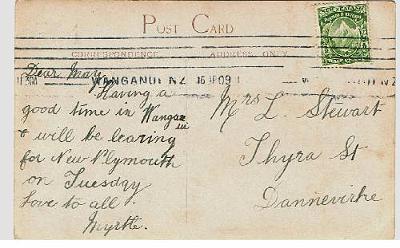 POST CARD
CORRESPONDENCE ADDRESS ONLY
NEW ZEALAND
WANGANUI NZ
Dear May
Having a
good time in Wangan
ui
& will be leaving
for New Plymouth
on Tuesday
Love to all.
Myrtle.
Mrs L. Stewart
Thyra St
Dannevirke